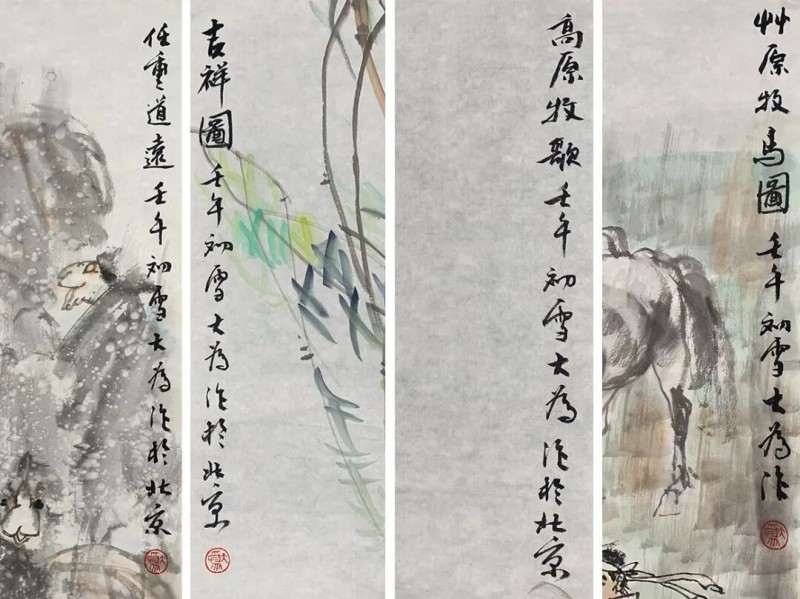 任重道遠壬午初雪大為作於北京
吉祥圖壬午初雪大為作於北京
高原牧歌壬午初雪大為作於北京
艸原牧馬圖壬午初雪大為作